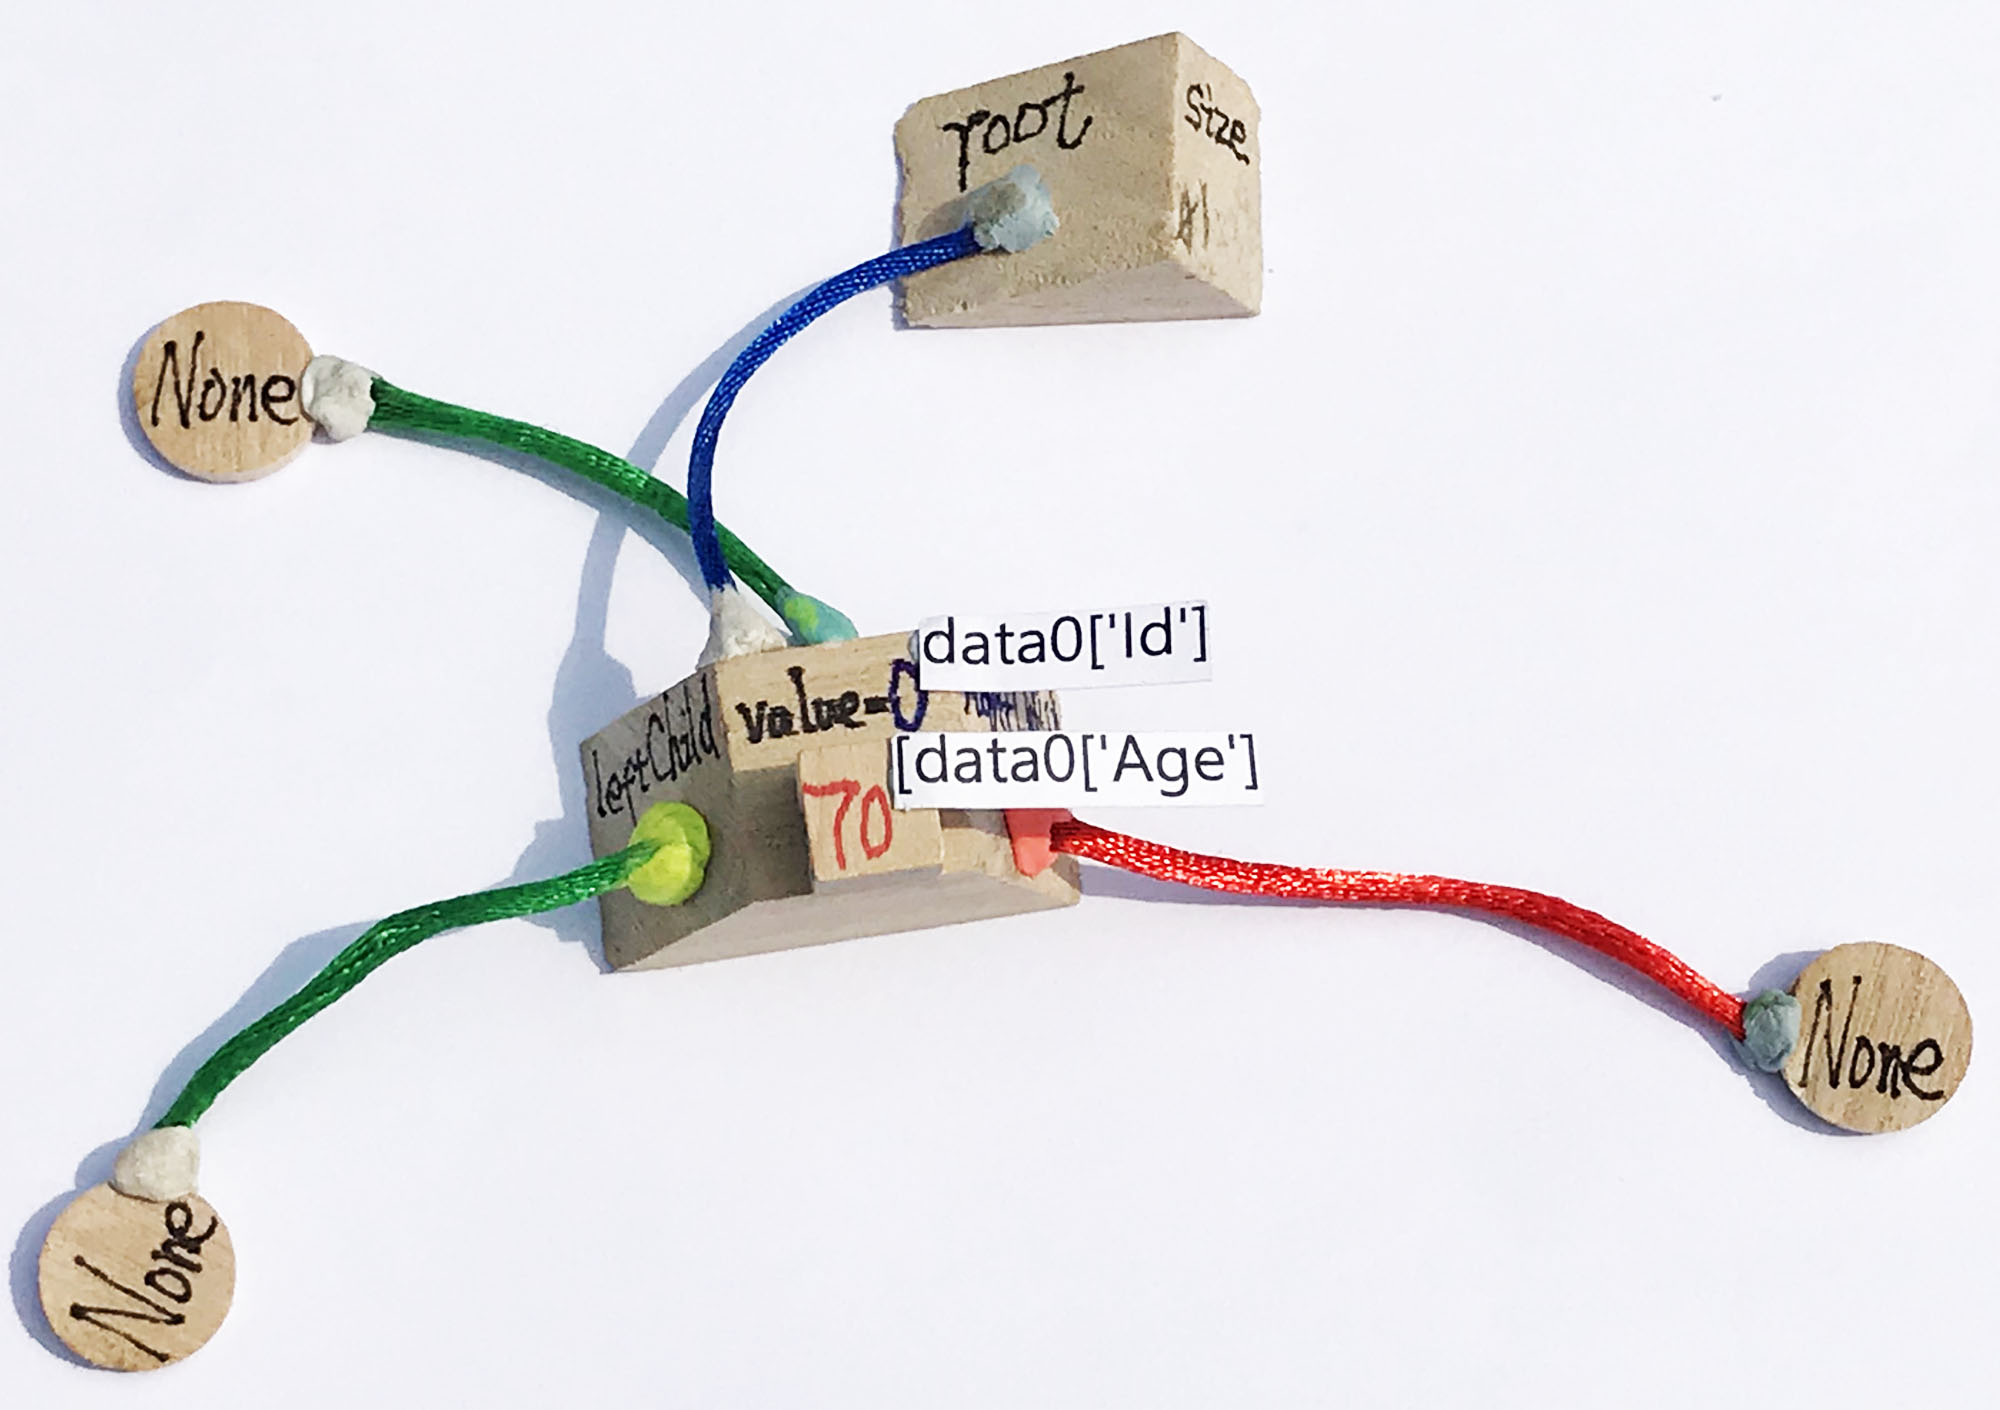 root
Size
None
data0['Id']
leftChild
value=0
[data0['Age']
70
None
None